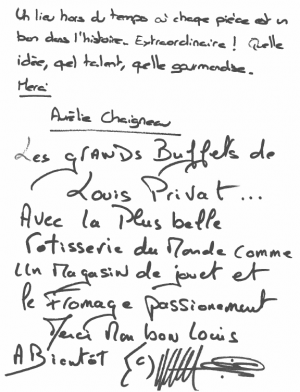 Un lieu hors du temps où chaque pièce est un
bon dans l'histoire. Extraordinaire ! Quelle
idée, quel talent, quelle gourmandise.
Merci
Aurélie Chaigneau
Les grands Buffets de
Louis Privat...
Avec la Plus belle
rotisserie du Monde comme
un Magasin de jouet et
le Fromage passionement
Merci Mon bon Louis
A Bientôt